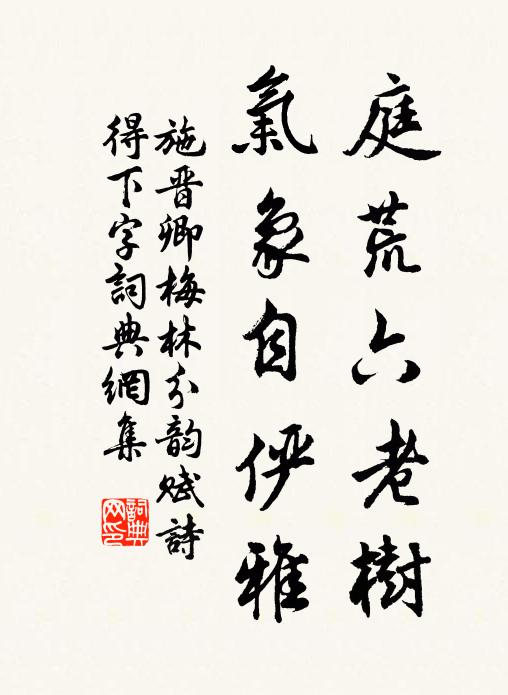 庭荒六老樹
氣象自俨雅
施晋卿梅林分韵赋詩
得下字詞典網集
詞典
网印